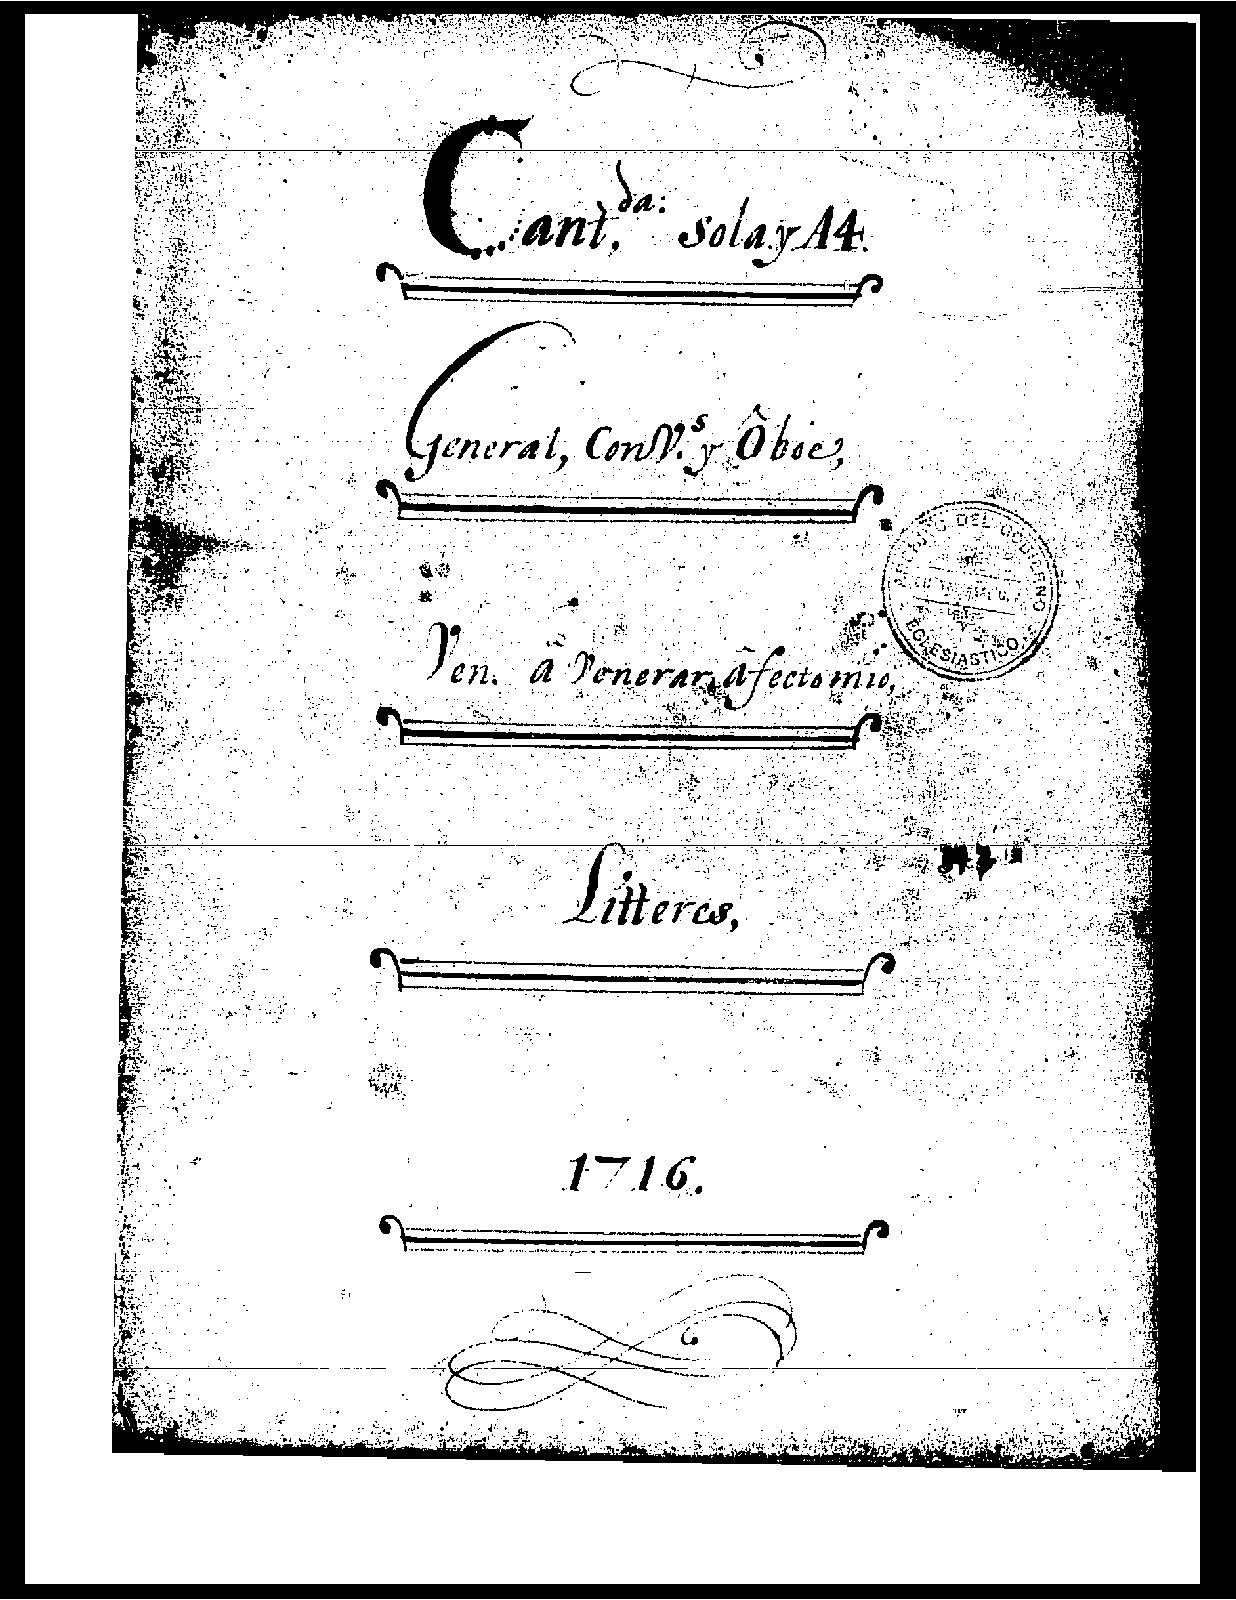 Cant.da: Sola y A4.
General, Con VV.s y Òboe,
ARCHIVO DEL GOBIERNO
ECLESIASTICO
Ven. â Venerar, âfecto mio,
Litteres,
1716.